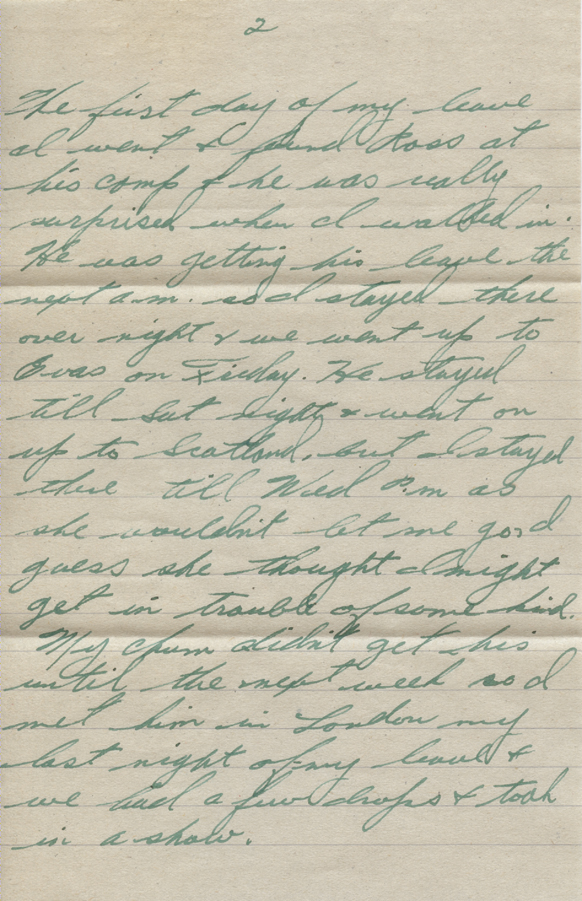 2
The first day of my leave
I went & found Ross at
his camp & he was really
surprised when I walked in.
He was getting his leave the
next a.m. so I stayed there
over night & we went up to
Evas on Friday. He stayed
till Sat night & went on
up to Scotland, but I stayed
there till Wed P.m as
she wouldn't let me go, I
guess she thought I might
get in trouble of some kind.
My chum didn't get his
until the next week so I
met him in London my
last night of my leave &
we had a few drops & took
in a show.